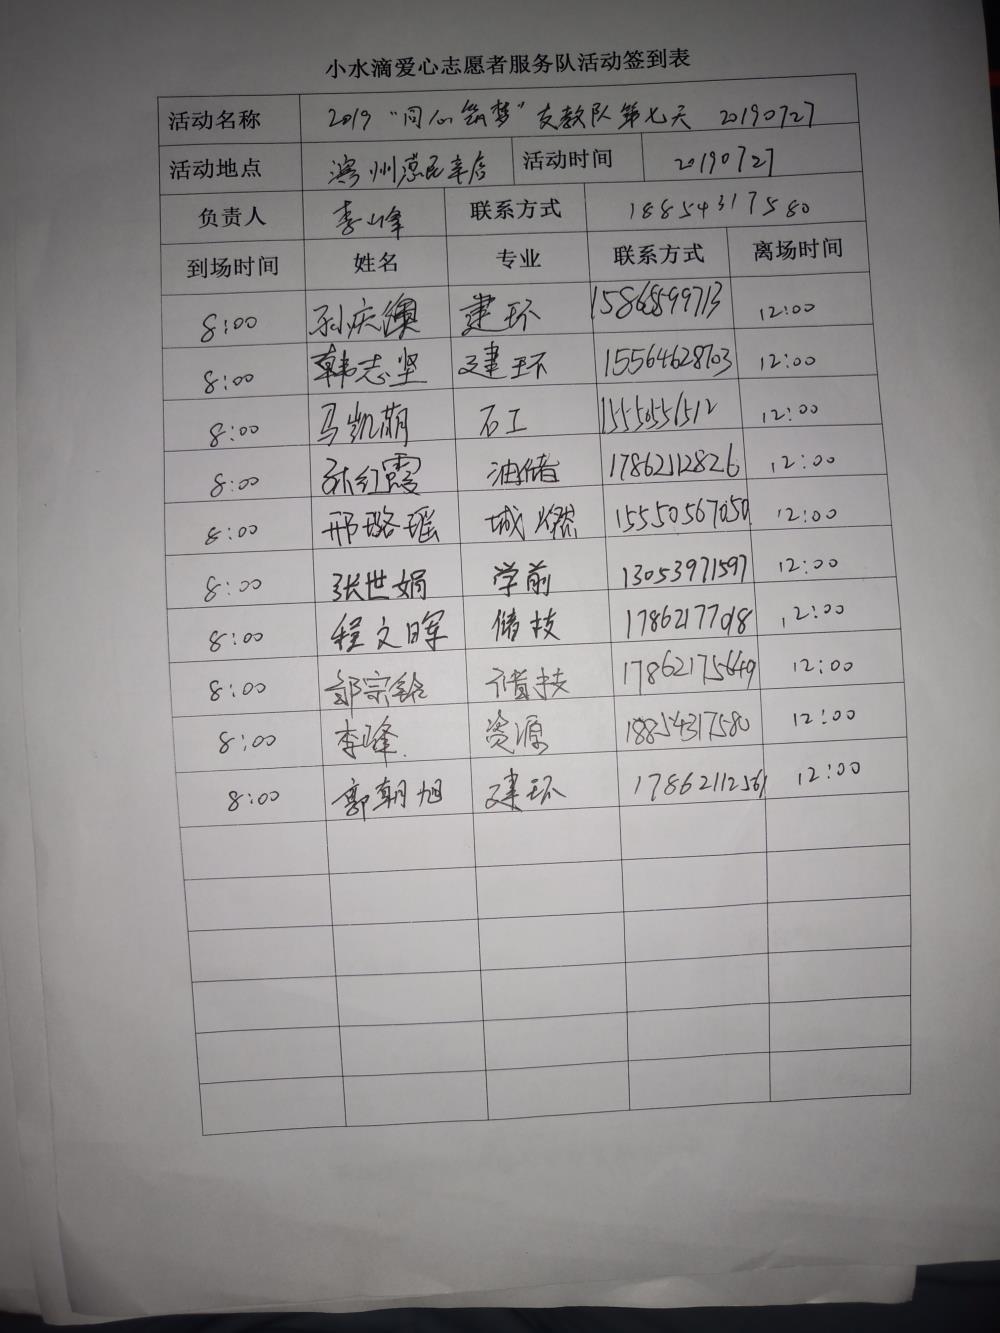 小水滴爱心志愿者服务队活动签到表
活动名称 2019“同心筑梦”支教队第七天 20190727
活动地点 滨州惠民辛店 活动时间 20190727
负责人 李峰 联系方式 18854317580
到场时间 姓名 专业 联系方式 离场时间
8:00 孙庆澳 建环 15865599713 12:00
8:00 韩志坚 建环 15564628703 12:00
8:00 马凯萌 石工 15550556512 12:00
8:00 张红霞 油储 17862112826 12:00
8:00 邢璐瑶 城燃 15550567050 12:00
8:00 张世娟 学前 13053971597 12:00
8:00 程文晖 储技 17862177018 12:00
8:00 郭宗铃 储技 17862175649 12:00
8:00 李峰 资源 18854317580 12:00
8:00 郭朝旭 建环 17862112561 12:00